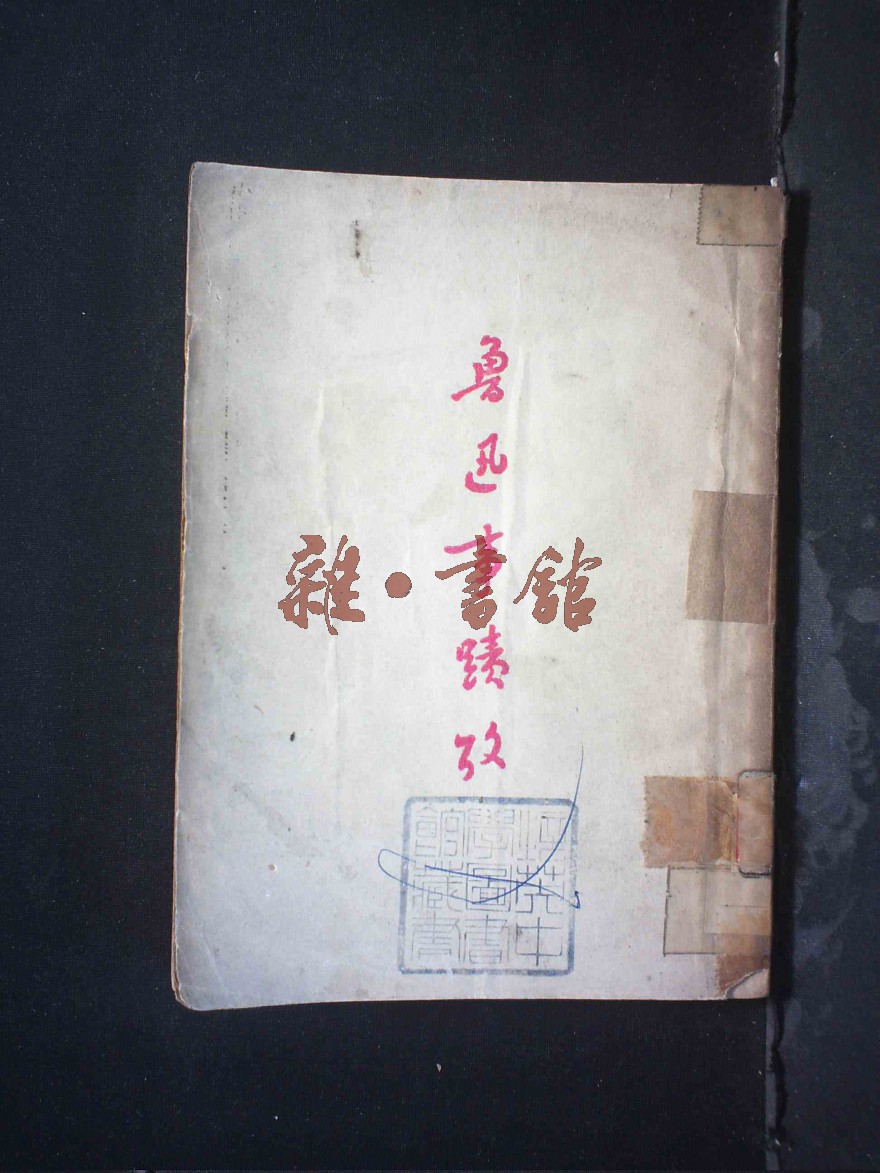 魯迅事蹟攷
雜·書館
英中
學圖書
館藏書